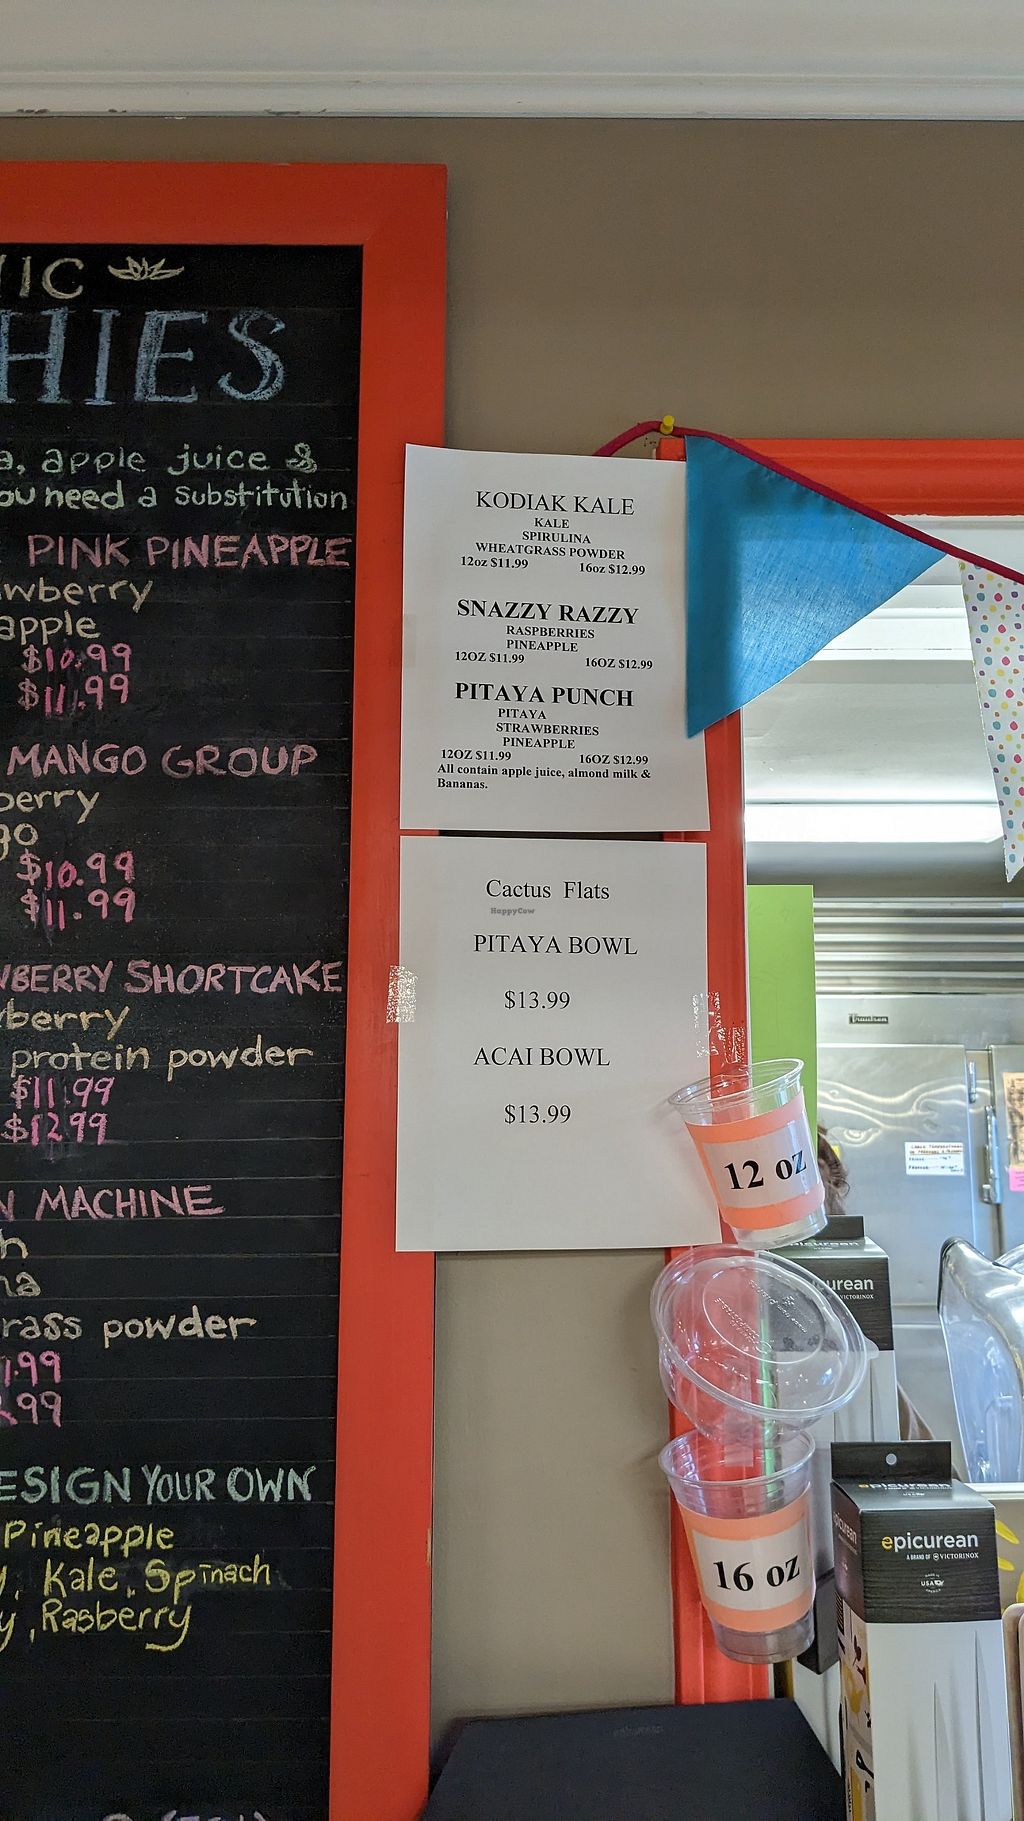 IC
HIES
a, apple juice &
ou need a Substitution
PINK PINEAPPLE
wberry
apple
$10.99
$11.99
MANGO GROUP
berry
go
$10.99
$11.99
WBERRY SHORTCAKE
berry
protein powder
$11.99
$12.99
N MACHINE
h
na
rass powder
1.99
2.99
ESIGN YOUR OWN
Pineapple
y, Kale, Spinach
y, Rasberry
KODIAK KALE
KALE
SPIRULINA
WHEATGRASS POWDER
12oz $11.99 16oz $12.99
SNAZZY RAZZY
RASPBERRIES
PINEAPPLE
12OZ $11.99 16OZ $12.99
PITAYA PUNCH
PITAYA
STRAWBERRIES
PINEAPPLE
12OZ $11.99 16OZ $12.99
All contain apple juice, almond milk &
Bananas.
Cactus Flats
HappyCow
PITAYA BOWL
$13.99
ACAI BOWL
$13.99
12 oz
16 oz
Traulsen
epicurean
urean
VICTORINOX
epicurean
epicurean
A BRAND OF VICTORINOX
MADE IN
USA